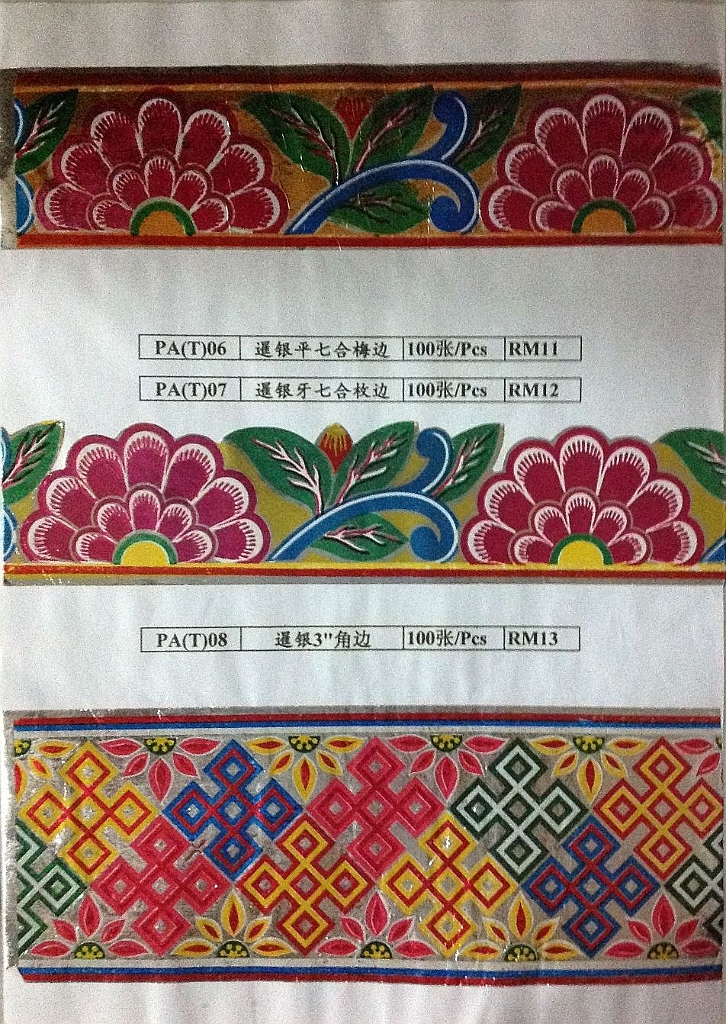 PA(T)06 暹银平七合梅边 100张/Pcs RM11
PA(T)07 暹银牙七合枚边 100张/Pcs RM12
PA(T)08 暹银3"角边 100张/Pcs RM13